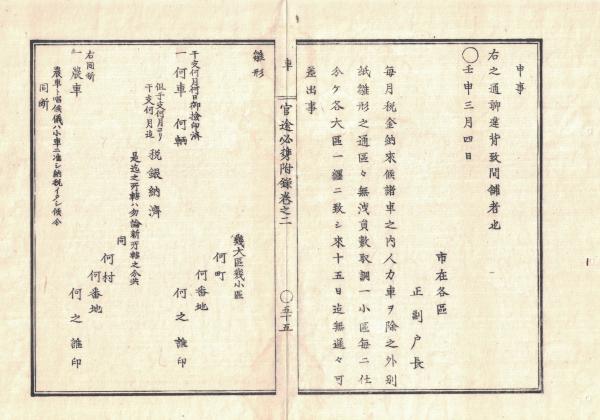 申事
右之通聊違背致間鋪者也
〇壬申三月四日
市在各區
正副戸長
毎月税金納來候諸車之内人力車ヲ除之外別
紙雛形之通區々無洩員數取調一小區毎ニ仕
分ケ各大區一纒ニ致シ來十五日迄無遲々可
差出事
車
官途必携附錄卷之二
〇五十五
雛形
幾大區幾小區
何町
何番地
干支何月何日御撿印濟
一何車 何輌
何之誰印
但干支何月ヨリ
干支何月迄
税銀納濟
是迄之所轄ハ勿論新所轄之分共
同
何村
何番地
右同斷
一農車
何之誰印
農車ト唱候儀ハ小車ニ准シ納税イタシ候分
同斷